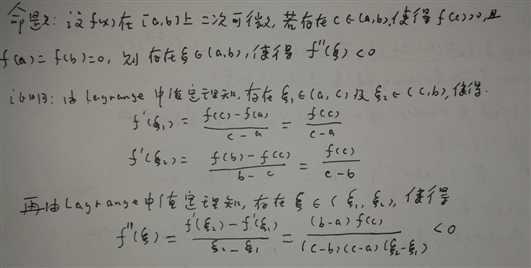 命题: 设 f(x) 在 [a,b] 上二次可微, 若存在 c∈(a,b), 使得 f(c)>0, 且
f(a)=f(b)=0, 则 存在 ξ∈(a,b), 使得 f''(ξ)<0
证明: 由 Lagrange 中值定理知, 存在 ξ₁∈(a,c) 及 ξ₂∈(c,b), 使得.
f'(ξ₁) = (f(c)-f(a))/(c-a) = f(c)/(c-a)
f'(ξ₂) = (f(b)-f(c))/(b-c) = f(c)/(c-b)
再由 Lagrange 中值定理知, 存在 ξ∈(ξ₁,ξ₂), 使得
f''(ξ) = (f'(ξ₂)-f'(ξ₁))/(ξ₂-ξ₁) = (b-a)f(c)/((c-b)(c-a)(ξ₂-ξ₁)) <0